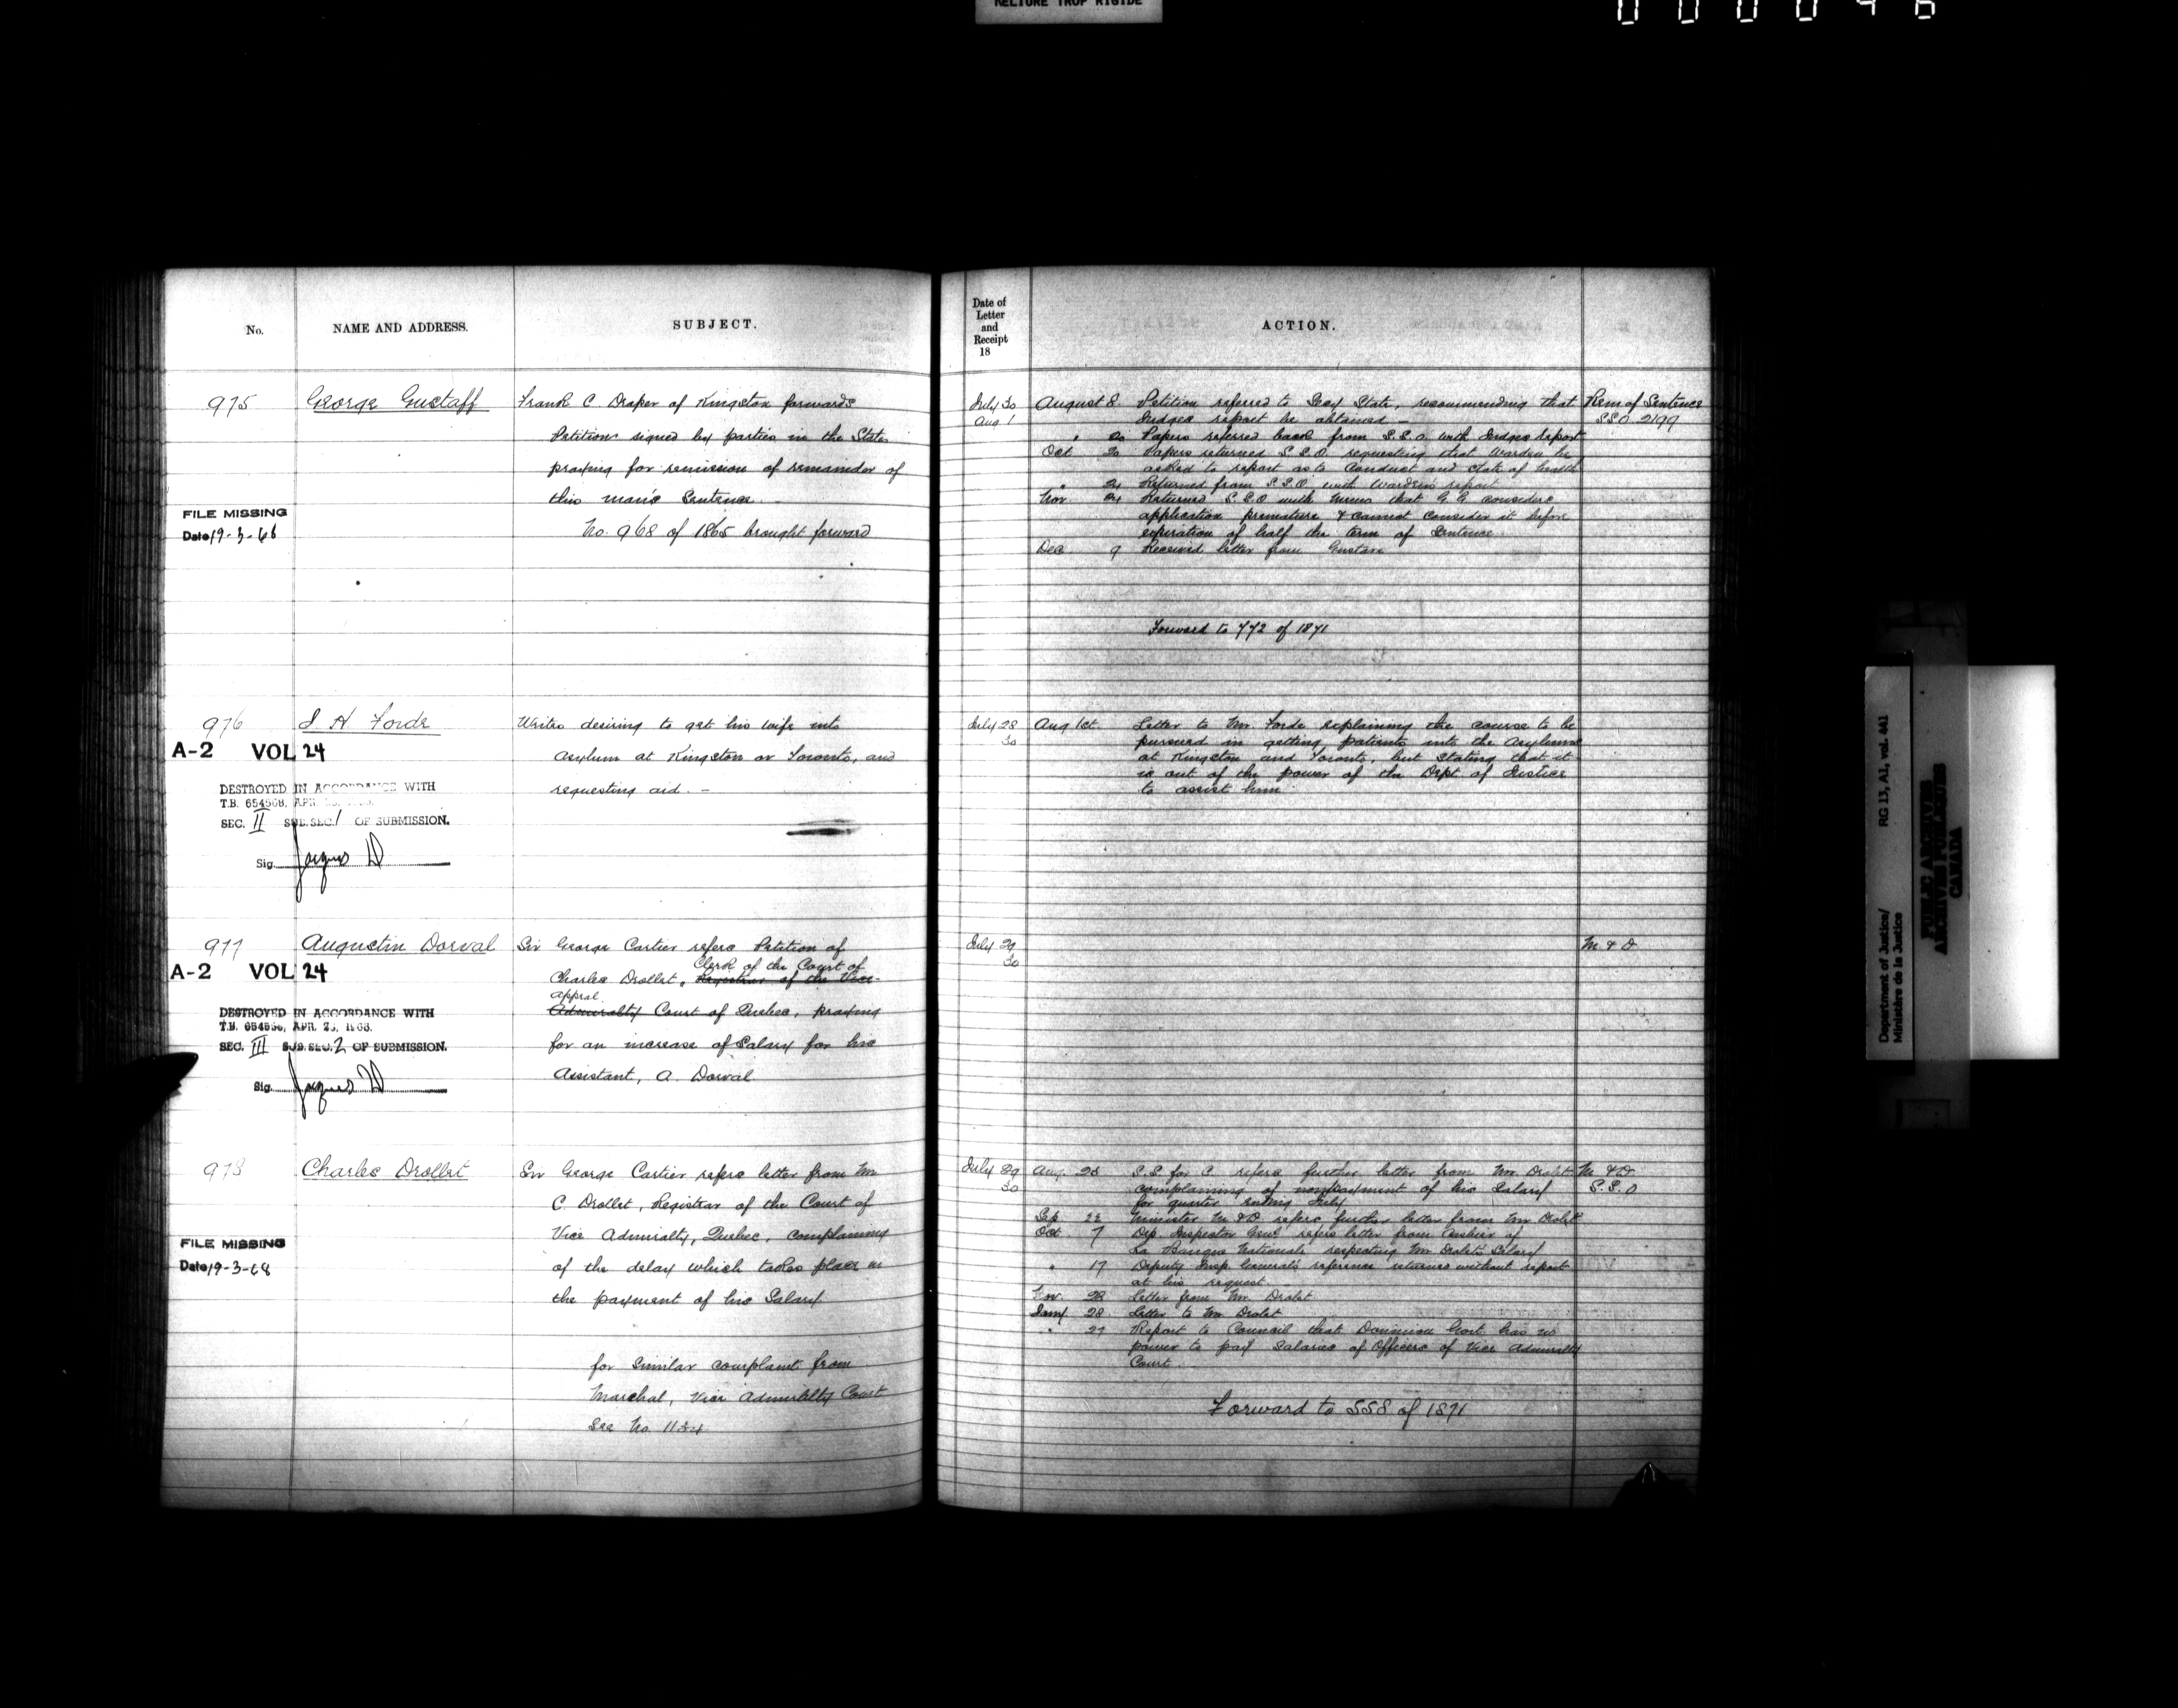 RELIURE TROP RIGIDE
No.
NAME AND ADDRESS.
SUBJECT.
975
George Gustaff
Frank C. Draper of Kingston forwards
Petition signed by parties in the States
praying for remission of remainder of
this man's Sentence. -
No. 968 of 1865 brought forward
FILE MISSING
Date 19-3-68
976
J H Forde
Writes desiring to get his wife into
asylum at Kingston or Toronto, and
requesting aid. -
A-2 VOL 24
DESTROYED IN ACCORDANCE WITH
T.B. 654568, APR.
SEC. II SUB.SEC. 1 OF SUBMISSION.
Sig. Jacques D
977
Augustin Dorval
Sir George Cartier refers Petition of
Clerk of the Court of
Charles Drollet, Registrar of the Vice
appeal
Admiralty Court of Quebec, praying
for an increase of Salary for his
Assistant, A. Dorval
A-2 VOL 24
DESTROYED IN ACCORDANCE WITH
T.B. 654568, APR. 25, 1968.
SEC. III SUB.SEC. 2 OF SUBMISSION.
Sig. Jacques D
978
Charles Drollet
Sir George Cartier refers letter from Mr
C. Drollet, Registrar of the Court of
Vice Admiralty, Quebec, complaining
of the delay which takes place in
the payment of his Salary
for similar complaint from
Marshal, Vice Admiralty Court
See No. 1134
FILE MISSING
Date 19-3-68
Date of
Letter
and
Receipt
18
ACTION.
July 30
Aug 1
August 8. Petition referred to Secy State, recommending that
Judges report be obtained -
" 20 Papers referred back from S.S.O. with Judges report
Oct 20 Papers returned S.S.O. requesting that Warden be
asked to report as to Conduct and state of health
" 24 Returned from S.S.O. with Warden's report
Nov 24 Returned S.S.O with memo that G.G. considers
application premature & cannot consider it before
expiration of half the term of Sentence
Dec 9 Received letter from Gustave
Rem of Sentence
S.S.O 2199
Forward to 772 of 1871
July 28
30
Aug 1st. Letter to Mr. Forde explaining the course to be
pursued in getting patients into the Asylums
at Kingston and Toronto, but stating that it
is out of the power of the Dept of Justice
to assist him
July 29
30
M. & D
July 29
30
Aug. 23 S.S for C. refers further letter from Mr Drolet
complaining of nonpayment of his Salary
for quarter ending July
Sep 22 Minister M. & D refers further letter from Mr Drolet
Oct 7 Dep. Inspector Genl refers letter from Cashier of
La Banque Nationale respecting Mr Drolet's Salary
" 17 Deputy Insp General's reference returned without report
at his request
Nov. 28 Letter from Mr. Drolet
Jany. 28 Letter to Mr Drolet
" 27 Report to Council that Dominion Govt. has no
power to pay Salaries of Officers of Vice Admiralty
Court.
M. & D
S.S.O
Forward to 558 of 1871
Department of Justice/
Ministère de la Justice
RG 13, A1, vol. 441
PUBLIC ARCHIVES
ARCHIVES PUBLIQUES
CANADA